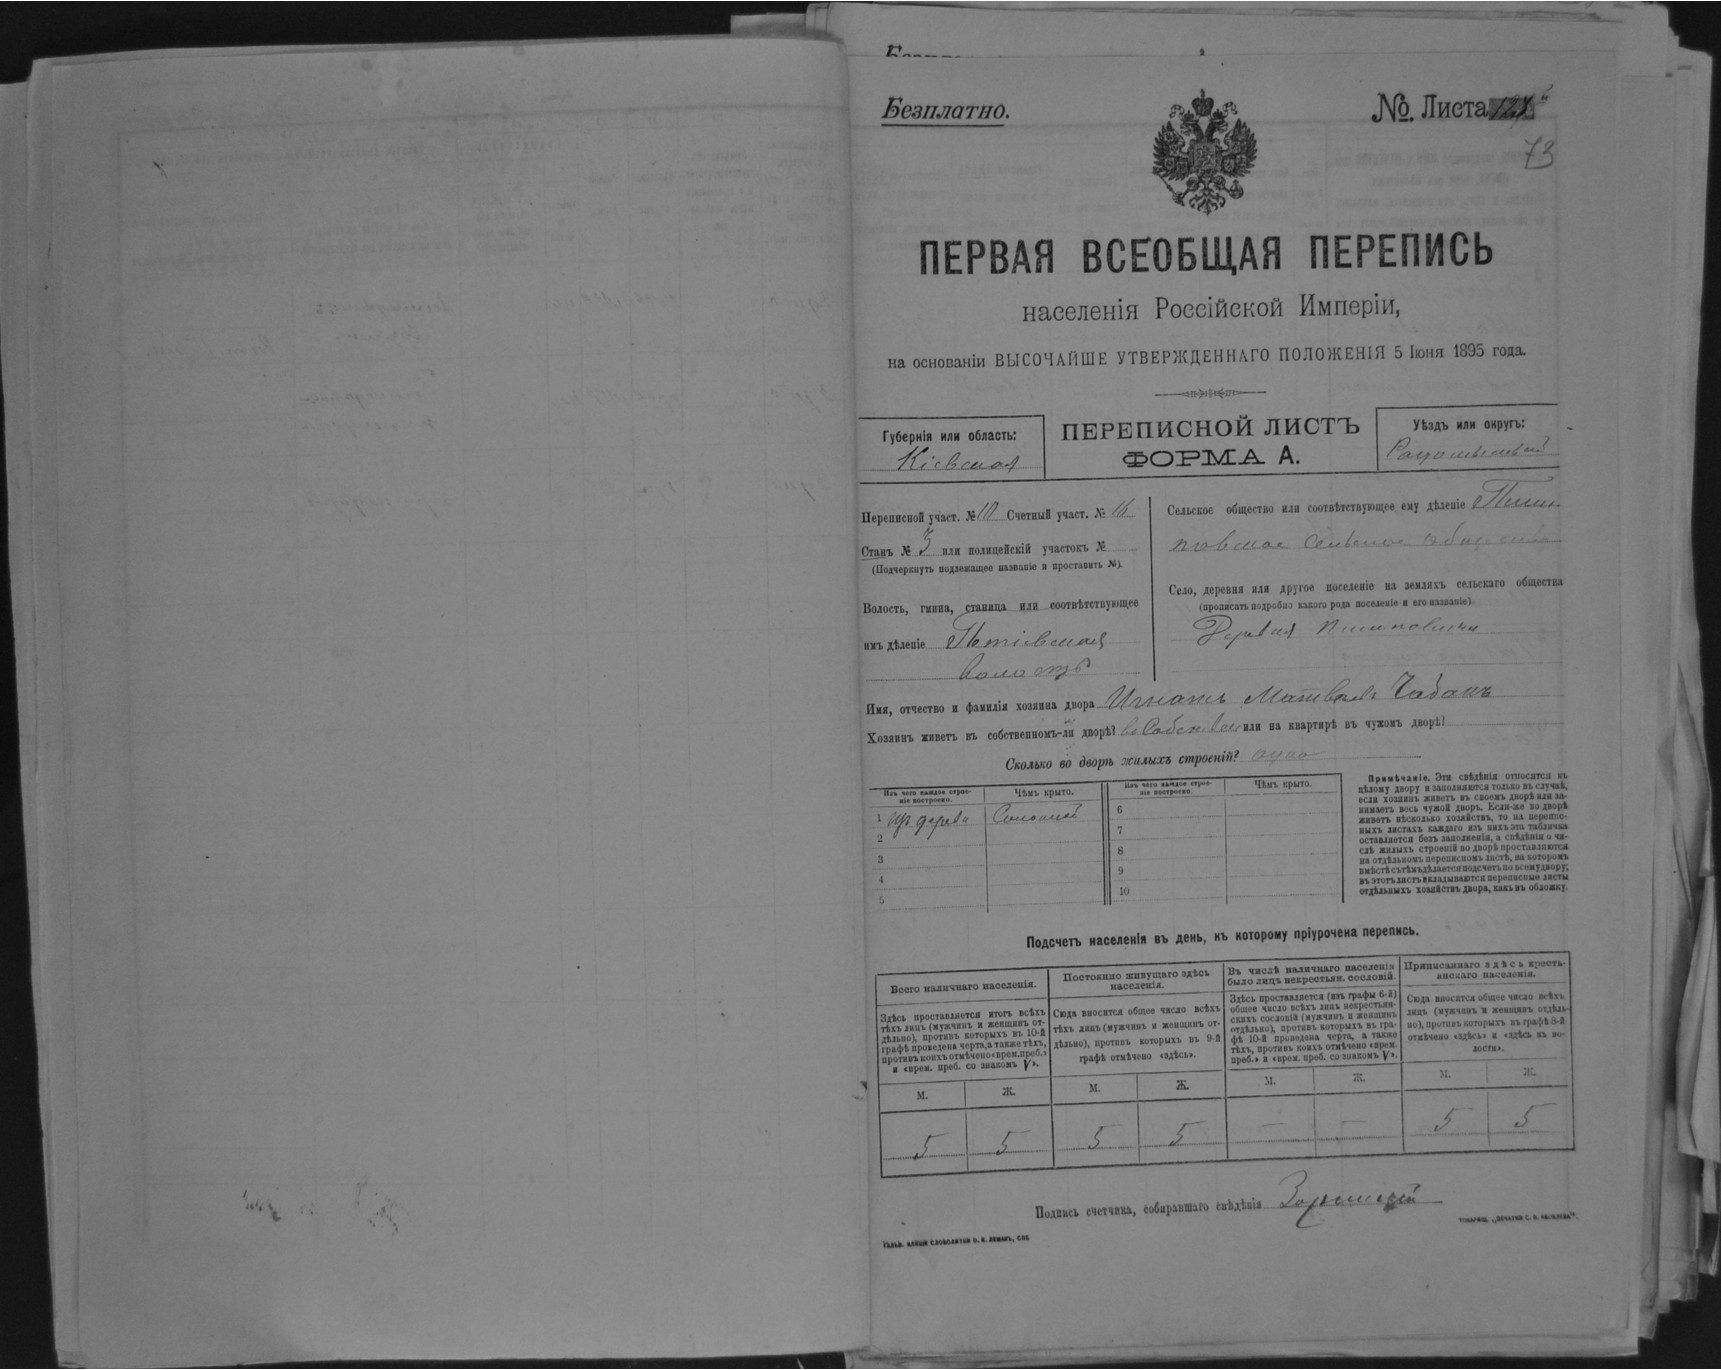 Безплатно.
№ Листа
73
ПЕРВАЯ ВСЕОБЩАЯ ПЕРЕПИСЬ
населенія Россійской Имперіи,
на основаніи ВЫСОЧАЙШЕ УТВЕРЖДЕННАГО ПОЛОЖЕНІЯ 5 Іюня 1895 года.
Губернія или область:
Кіевская
ПЕРЕПИСНОЙ ЛИСТЪ
ФОРМА А.
Уѣздъ или округъ:
Радомысльскій
Переписной участ. № 10 Счетный участ. № 16
Станъ № 3 или полицейскій участокъ №
(Подчеркнуть подлежащее названіе и проставить №).
Волость, гмина, станица или соотвѣтствующее
имъ дѣленіе Потіевская
волость
Сельское общество или соотвѣтствующее ему дѣленіе
сельское общество
Село, деревня или другое поселеніе на земляхъ сельскаго общества
(прописать подробно какого рода поселеніе и его названіе)
Деревня
Имя, отчество и фамилія хозяина двора Игнатъ Матвѣевъ Чабанъ
Хозяинъ живетъ въ собственномъ-ли дворѣ? въ собствен или на квартирѣ въ чужомъ дворѣ?
Сколько во дворѣ жилыхъ строеній? одно
Изъ чего каждое строеніе построено.
Чѣмъ крыто.
Изъ чего каждое строеніе построено.
Чѣмъ крыто.
1 изъ дерева Соломой
2
3
4
5
6
7
8
9
10
Примѣчаніе. Эти свѣдѣнія относятся къ
цѣлому двору и заполняются только въ случаѣ,
если хозяинъ живетъ въ своемъ дворѣ или за-
нимаетъ весь чужой дворъ. Если-же во дворѣ
живетъ нѣсколько хозяйствъ, то на перепис-
ныхъ листахъ каждаго изъ нихъ эта табличка
оставляется безъ заполненія, а свѣдѣнія о чи-
слѣ жилыхъ строеній во дворѣ проставляются
на отдѣльномъ переписномъ листѣ, на которомъ
вмѣстѣ съ тѣмъ дѣлается подсчетъ по всему двору;
въ этотъ листъ вкладываются переписные листы
отдѣльныхъ хозяйствъ двора, какъ въ обложку.
Подсчетъ населенія въ день, къ которому пріурочена перепись.
Всего наличнаго населенія.
Здѣсь проставляется итогъ всѣхъ
тѣхъ лицъ (мужчинъ и женщинъ от-
дѣльно), противъ которыхъ въ 10-й
графѣ проведена черта, а также тѣхъ,
противъ коихъ отмѣчено «врем. преб.»
и «врем. преб. со знакомъ V».
Постоянно живущаго здѣсь
населенія.
Сюда вносится общее число всѣхъ
тѣхъ лицъ (мужчинъ и женщинъ от-
дѣльно), противъ которыхъ въ 9-й
графѣ отмѣчено «здѣсь».
Въ числѣ наличнаго населенія
было лицъ некрестьян. сословій.
Здѣсь проставляется (изъ графы 6-й)
общее число всѣхъ лицъ некрестьян-
скихъ сословій (мужчинъ и женщинъ
отдѣльно), противъ которыхъ въ гра-
фѣ 10-й проведена черта, а также
тѣхъ, противъ коихъ отмѣчено «врем.
преб.» и «врем. преб. со знакомъ V».
Приписаннаго здѣсь кресть-
янскаго населенія.
Сюда вносится общее число всѣхъ
лицъ (мужчинъ и женщинъ отдѣль-
но), противъ которыхъ въ графѣ 8-й
отмѣчено «здѣсь» и «здѣсь въ во-
лости».
М. Ж. М. Ж. М. Ж. М. Ж.
5 5 5 5 — — 5 5
Подпись счетчика, собиравшаго свѣдѣнія